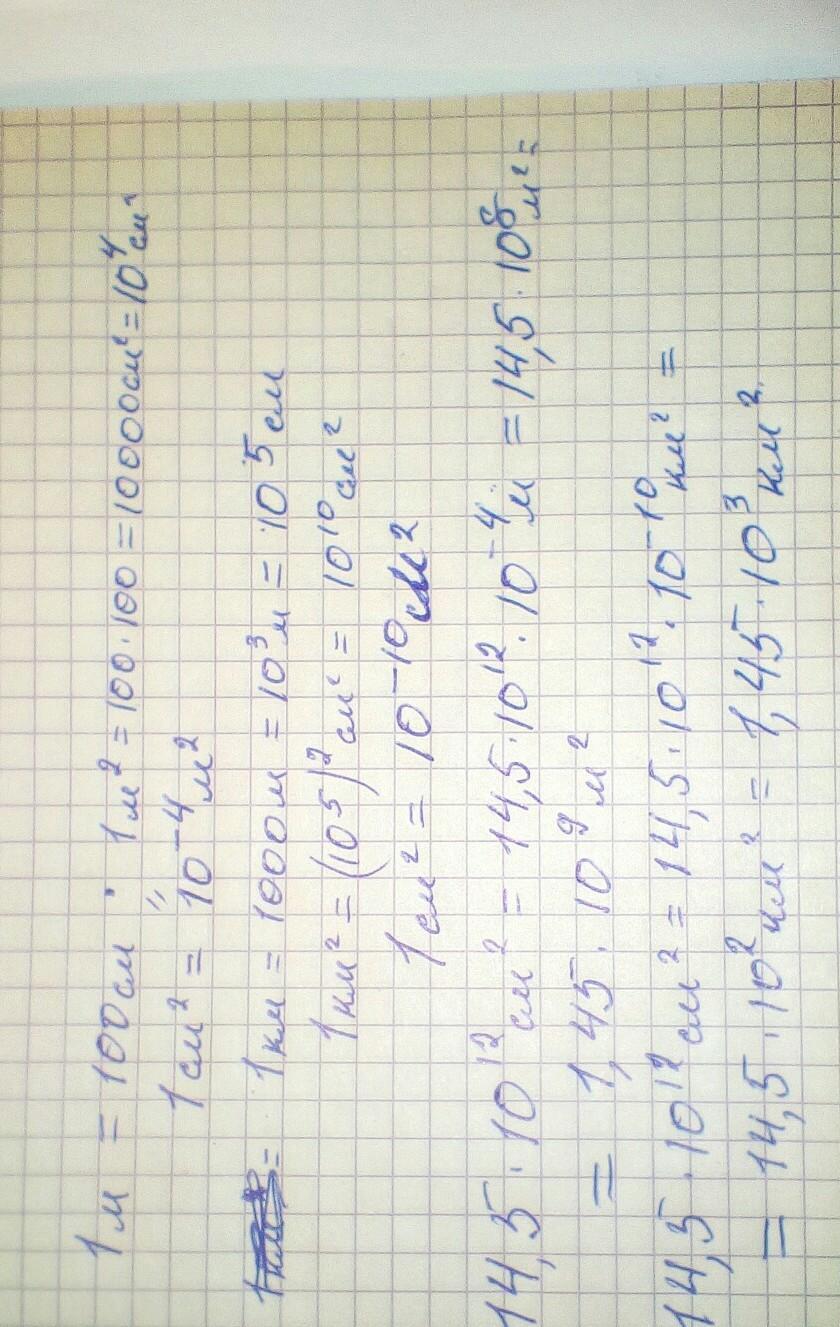 1 м = 100 см ; 1 м² = 100·100 = 10000 см² = 10⁴ см²
1 см² = 10⁻⁴ м²
1 км = 1000 м = 10³ м = 10⁵ см
1 км² = (10⁵)² см² = 10¹⁰ см²
1 см² = 10⁻¹⁰ см²
14,5·10¹² см² = 14,5·10¹²·10⁻⁴ м = 14,5·10⁸ м² =
= 1,45·10⁹ м²
14,5·10¹² см² = 14,5·10¹²·10⁻¹⁰ км² =
= 14,5·10² км² = 1,45·10³ км²